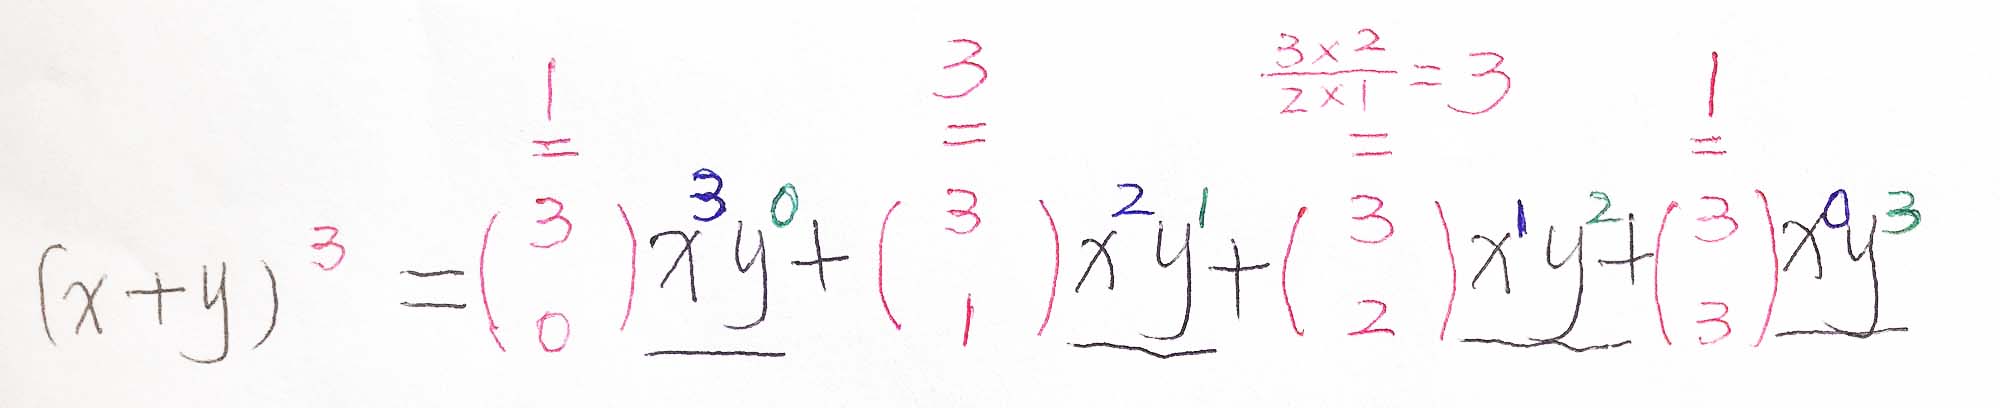 1 3 3 x 2 / 2 x 1 = 3 1
= = = =
(x+y)³ = (3 0) x³y⁰ + (3 1) x²y¹ + (3 2) x¹y² + (3 3) x⁰y³